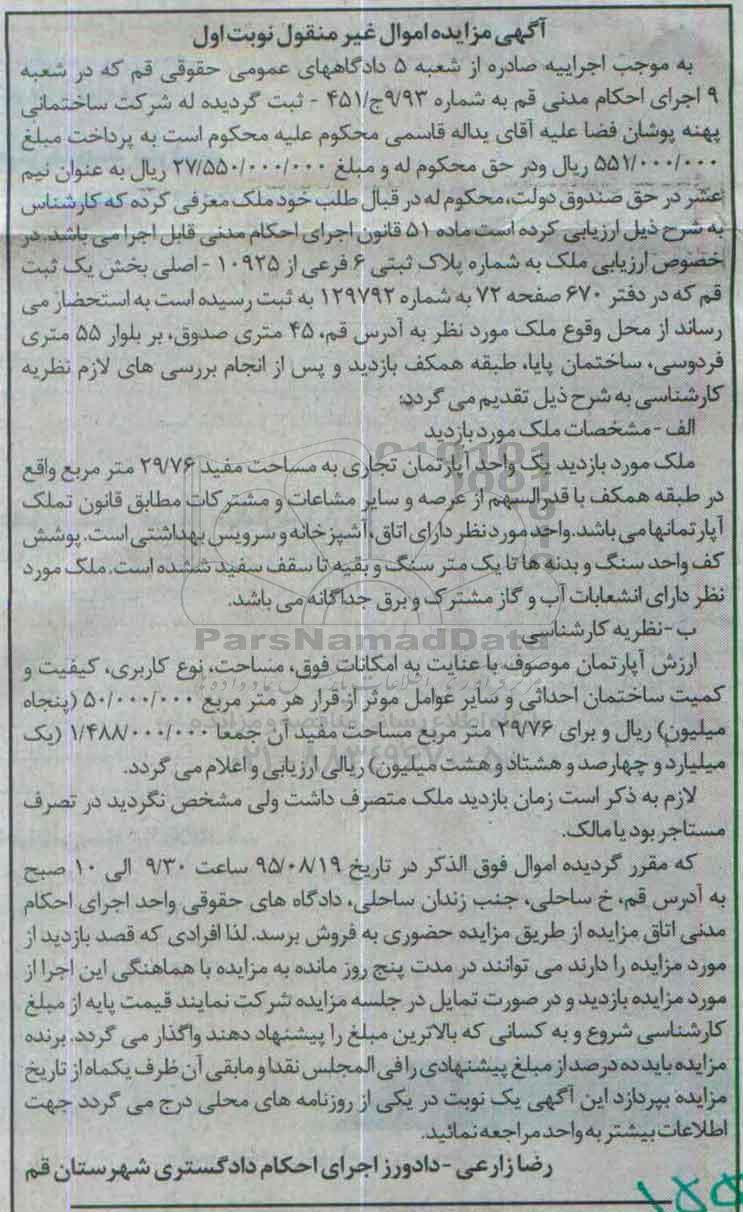 آگهی مزایده اموال غیر منقول نوبت اول
به موجب اجراییه صادره از شعبه ۵ دادگاههای عمومی حقوقی قم که در شعبه
۹ اجرای احکام مدنی قم به شماره ۹/۹۳ج/۴۵۱ - ثبت گردیده له شرکت ساختمانی
پهنه پوشان فضا علیه آقای یداله قاسمی محکوم علیه محکوم است به پرداخت مبلغ
۵۵۱/۰۰۰/۰۰۰ ریال ودر حق محکوم له و مبلغ ۲۷/۵۵۰/۰۰۰/۰۰۰ ریال به عنوان نیم
عشر در حق صندوق دولت، محکوم له در قبال طلب خود ملک معرفی کرده که کارشناس
به شرح ذیل ارزیابی کرده است ماده ۵۱ قانون اجرای احکام مدنی قابل اجرا می باشد. در
خصوص ارزیابی ملک به شماره پلاک ثبتی ۶ فرعی از ۱۰۹۲۵ - اصلی بخش یک ثبت
قم که در دفتر ۶۷۰ صفحه ۷۲ به شماره ۱۲۹۷۹۲ به ثبت رسیده است به استحضار می
رساند از محل وقوع ملک مورد نظر به آدرس قم، ۴۵ متری صدوق، بر بلوار ۵۵ متری
فردوسی، ساختمان پایا، طبقه همکف بازدید و پس از انجام بررسی های لازم نظریه
کارشناسی به شرح ذیل تقدیم می گردد:
الف - مشخصات ملک مورد بازدید
ملک مورد بازدید یک واحد آپارتمان تجاری به مساحت مفید ۲۹/۷۶ متر مربع واقع
در طبقه همکف با قدرالسهم از عرصه و سایر مشاعات و مشترکات مطابق قانون تملک
آپارتمانها می باشد. واحد مورد نظر دارای اتاق، آشپزخانه و سرویس بهداشتی است. پوشش
کف واحد سنگ و بدنه ها تا یک متر سنگ و بقیه تا سقف سفید شده است. ملک مورد
نظر دارای انشعابات آب و گاز مشترک و برق جداگانه می باشد.
ب - نظریه کارشناسی
ParsNamadData
ارزش آپارتمان موصوف با عنایت به امکانات فوق، مساحت، نوع کاربری، کیفیت و
کمیت ساختمان احداثی و سایر عوامل موثر از قرار هر متر مربع ۵۰/۰۰۰/۰۰۰ (پنجاه
میلیون) ریال و برای ۲۹/۷۶ متر مربع مساحت مفید آن جمعا ۱/۴۸۸/۰۰۰/۰۰۰ (یک
میلیارد و چهارصد و هشتاد و هشت میلیون) ریالی ارزیابی و اعلام می گردد.
لازم به ذکر است زمان بازدید ملک متصرف داشت ولی مشخص نگردید در تصرف
مستاجر بود یا مالک.
که مقرر گردیده اموال فوق الذکر در تاریخ ۹۵/۰۸/۱۹ ساعت ۹/۳۰ الی ۱۰ صبح
به آدرس قم، خ ساحلی، جنب زندان ساحلی، دادگاه های حقوقی واحد اجرای احکام
مدنی اتاق مزایده از طریق مزایده حضوری به فروش برسد. لذا افرادی که قصد بازدید از
مورد مزایده را دارند می توانند در مدت پنج روز مانده به مزایده با هماهنگی این اجرا از
مورد مزایده بازدید و در صورت تمایل در جلسه مزایده شرکت نمایند قیمت پایه از مبلغ
کارشناسی شروع و به کسانی که بالاترین مبلغ را پیشنهاد دهند واگذار می گردد. برنده
مزایده باید ده درصد از مبلغ پیشنهادی را فی المجلس نقدا و مابقی آن ظرف یکماه از تاریخ
مزایده بپردازد این آگهی یک نوبت در یکی از روزنامه های محلی درج می گردد جهت
اطلاعات بیشتر به واحد مراجعه نمائید.
رضا زارعی - دادورز اجرای احکام دادگستری شهرستان قم